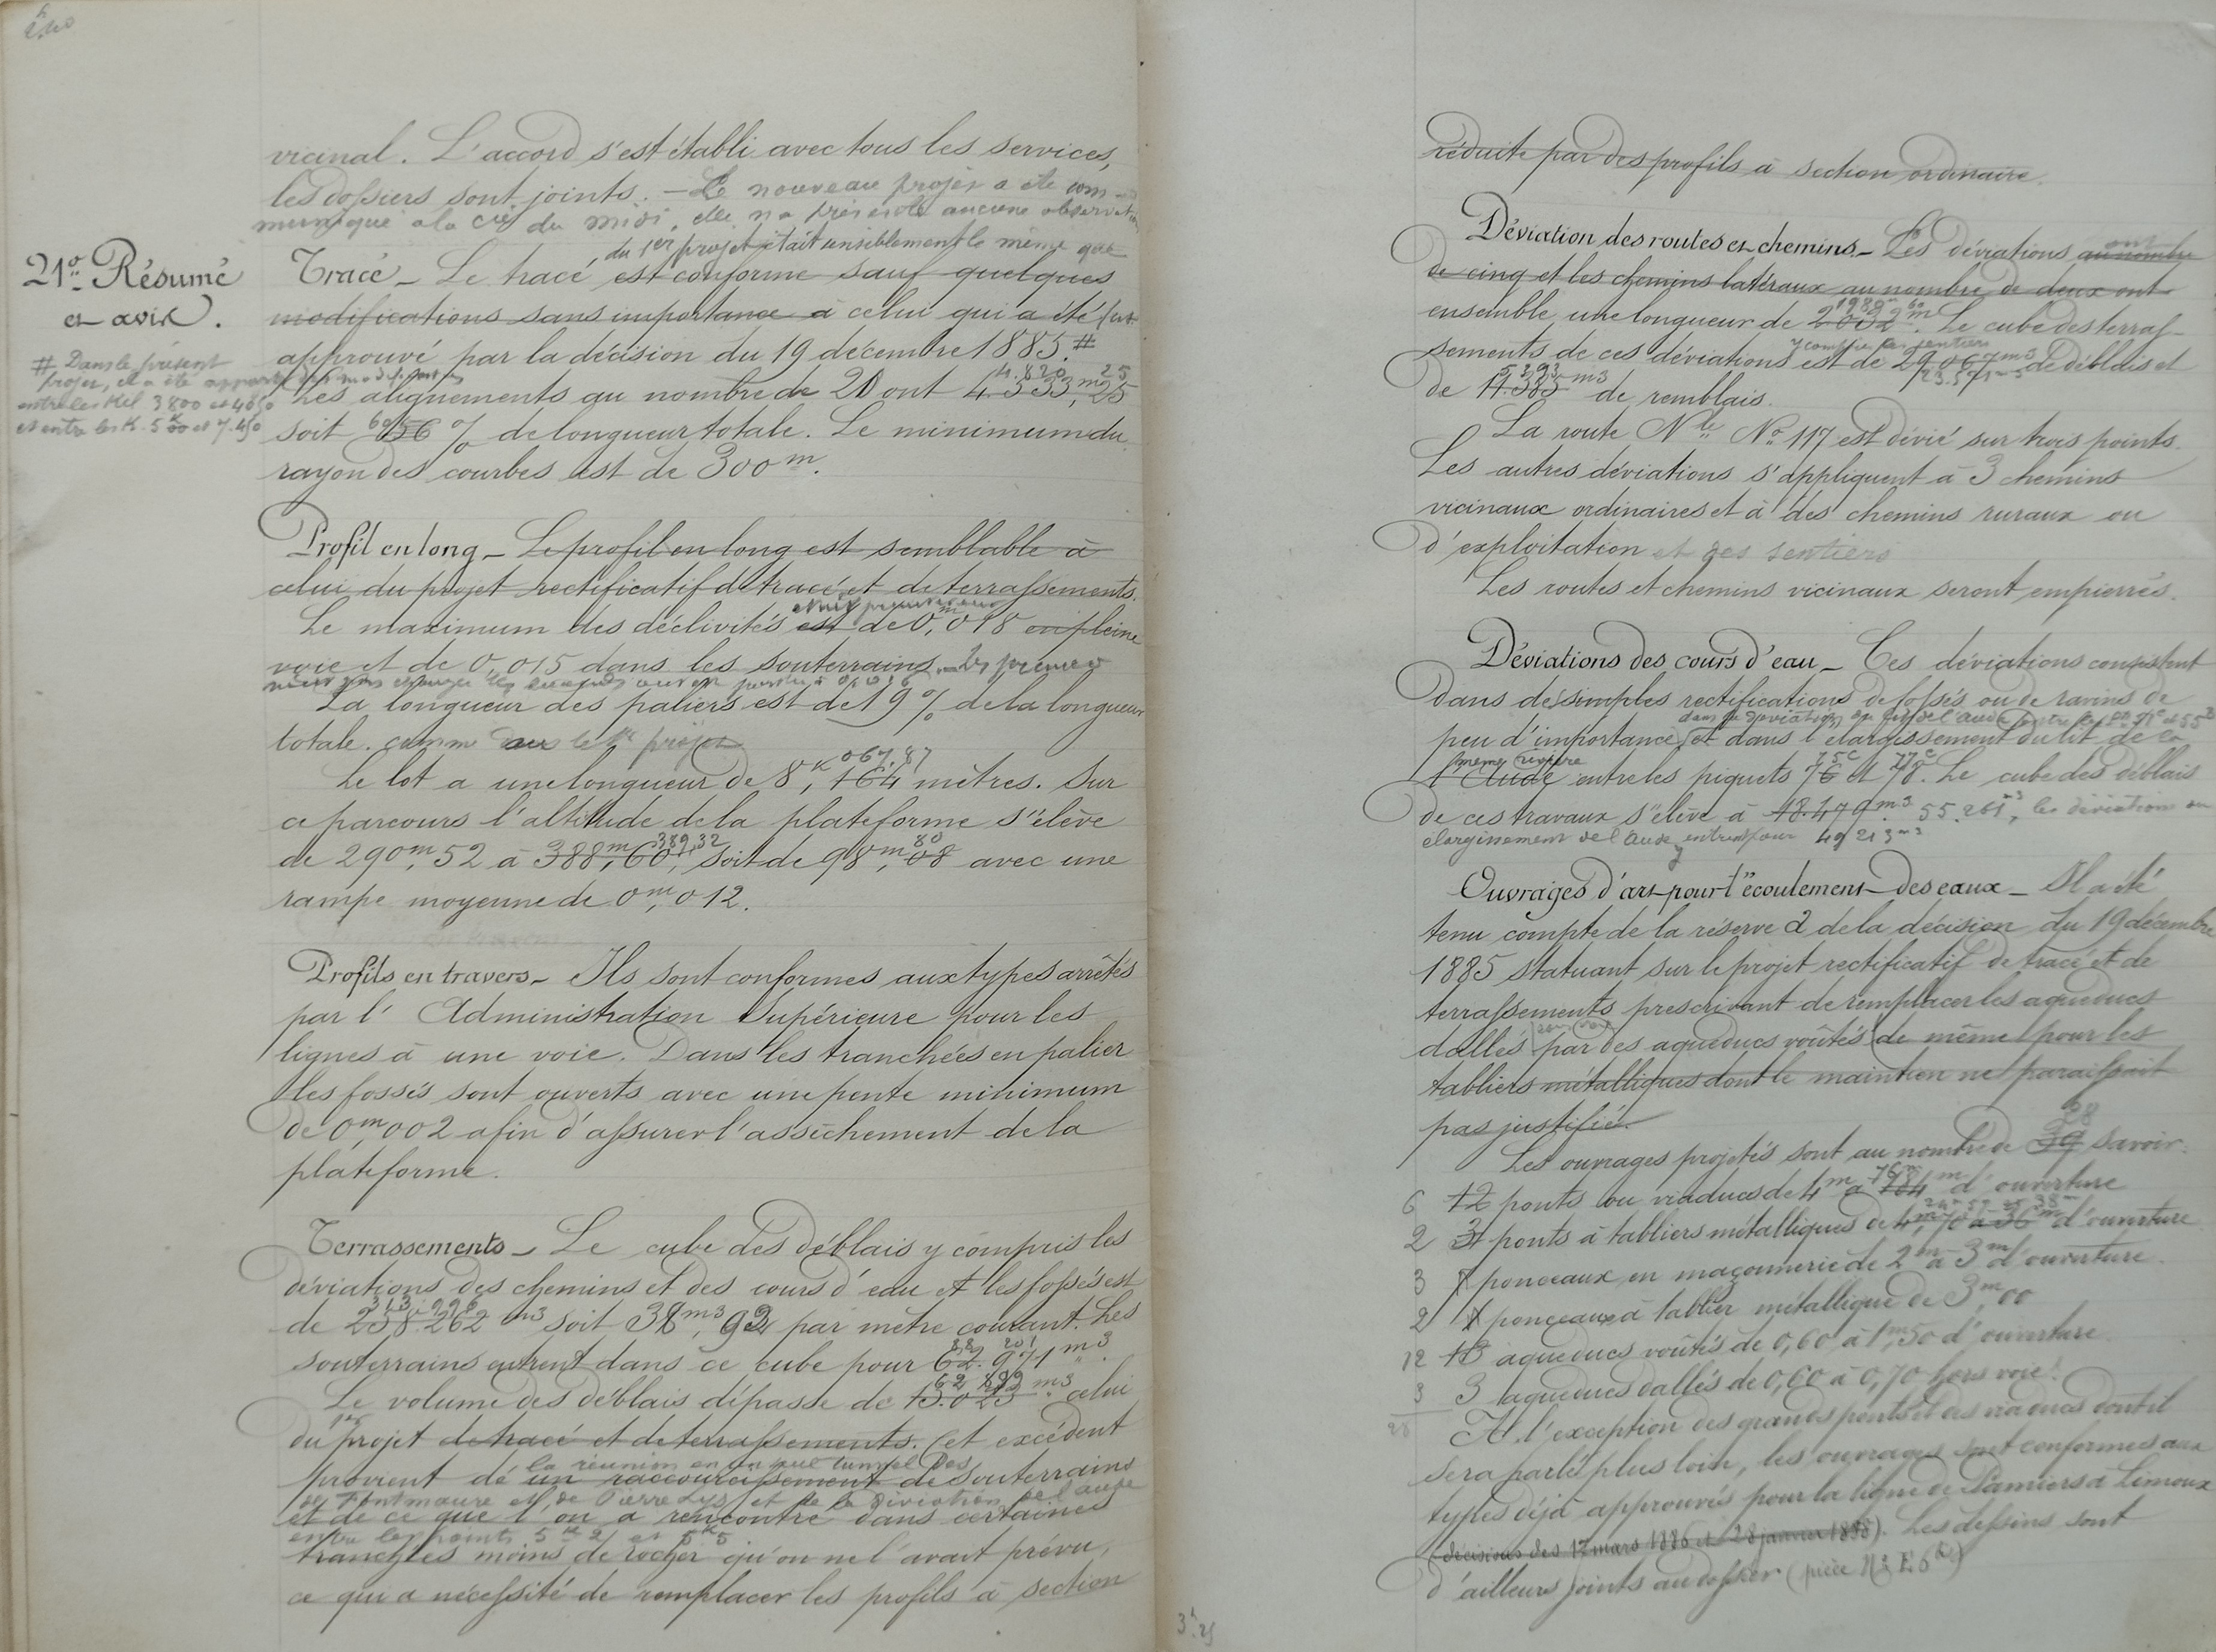 vicinal. L'accord s'est établi avec tous les services,
les dossiers sont joints. — Le nouveau projet a été com-
muniqué à la Cie du midi, elle n'a présenté aucune observation
21° Résumé
et avis.
du 1er projet était sensiblement le même que
Tracé — Le tracé est conforme sauf quelques
modifications sans importance à celui qui a été
approuvé par la décision du 19 décembre 1885. #
# Dans le présent
projet, il a été apporté des modifications
entre les Kil 3800 et 4650
et entre les K. 5 et 7.450
4.820 25
Les alignements au nombre de 20 ont 4.533m,25
soit 60 56 % de longueur totale. Le minimum du
rayon des courbes est de 300m.
Profil en long — Le profil en long est semblable à
celui du projet rectificatif de tracé et de terrassements.
Le maximum des déclivités est de 0,m018 en pleine
voie et de 0,015 dans les souterrains. — Le premier
La longueur des paliers est de 19 % de la longueur
totale. comme dans le 1er projet
067.87
Le lot a une longueur de 8K,164 mètres. Sur
ce parcours l'altitude de la plateforme s'élève
389,32 80
de 290m,52 à 388m,60, soit de 98m,08 avec une
rampe moyenne de 0m,012.
Profils en travers — Ils sont conformes aux types arrêtés
par l'Administration Supérieure pour les
lignes à une voie. Dans les tranchées en palier
les fossés sont ouverts avec une pente minimum
de 0m,002 afin d'assurer l'assèchement de la
plateforme.
Terrassements — Le cube des déblais y compris les
déviations des chemins et des cours d'eau et les fossés est
313.998
de 258.262 m3 soit 38m3,92 par mètre courant. Les
88 201
souterrains entrent dans ce cube pour 62.971m3.
62
Le volume des déblais dépasse de 15.023 m3 celui
1er
du projet de tracé et de terrassements. (et excédent
la réunion en un seul tunnel des
provient de un raccourcissement de souterrains
de Fontmaure et de Pierre Lys et de la déviation de l'Aude
et de ce que l'on a rencontré dans certaines
entre les points 5K2 et 5K5
tranchées moins de rocher qu'on ne l'avait prévu,
ce qui a nécessité de remplacer les profils à section
réduite par des profils à section ordinaire.
Déviation des routes et chemins. — Les déviations au nombre
ont
de cinq et les chemins latéraux au nombre de deux ont
1982m 60
ensemble une longueur de 2032m. Le cube des terras-
y compris les sentiers
sements de ces déviations est de 29.067m3 de déblais et
5.293 23.571m3
de 11.385m3 de remblais.
La route Nle No 117 est déviée sur trois points.
Les autres déviations s'appliquent à 3 chemins
vicinaux ordinaires et à des chemins ruraux ou
d'exploitation et des sentiers
Les routes et chemins vicinaux seront empierrés.
Déviations des cours d'eau — Ces déviations consistent
dans de simples rectifications de fossés ou de ravins de
peu d'importance, et dans l'élargissement du lit de la
même rivière 75c 77c
l'Aude entre les piquets 76 et 78. Le cube des déblais
de ces travaux s'élève à 18.179m3. 55.261m3, les déviations ou
élargissement de l'Aude y entrent pour 49213m3
Ouvrages d'art pour l'écoulement des eaux — Il a été
tenu compte de la réserve 2 de la décision du 19 décembre
1885 statuant sur le projet rectificatif de tracé et de
terrassements prescrivant de remplacer les aqueducs
dallés par des aqueducs voûtés de même pour les
tabliers métalliques dont le maintien ne paraissait
pas justifié.
28
Les ouvrages projetés sont au nombre de 39 savoir:
76m
6 12 ponts ou viaducs de 4m à 184m d'ouverture
2 3 ponts à tabliers métalliques de 4m,70 à 36m d'ouverture
3 ponceaux en maçonnerie de 2m à 3m d'ouverture.
2 ponceaux à tablier métallique de 3m,00
12 aqueducs voûtés de 0,60 à 1m,50 d'ouverture
3 3 aqueducs dallés de 0,60 à 0,70 hors voie.
28
A l'exception des grands ponts et des viaducs dont il
sera parlé plus loin, les ouvrages sont conformes aux
types déjà approuvés pour la ligne de Pamiers à Limoux
(décisions des 17 mars 1886 et 28 janvier 1888). Les dessins sont
d'ailleurs joints au dossier